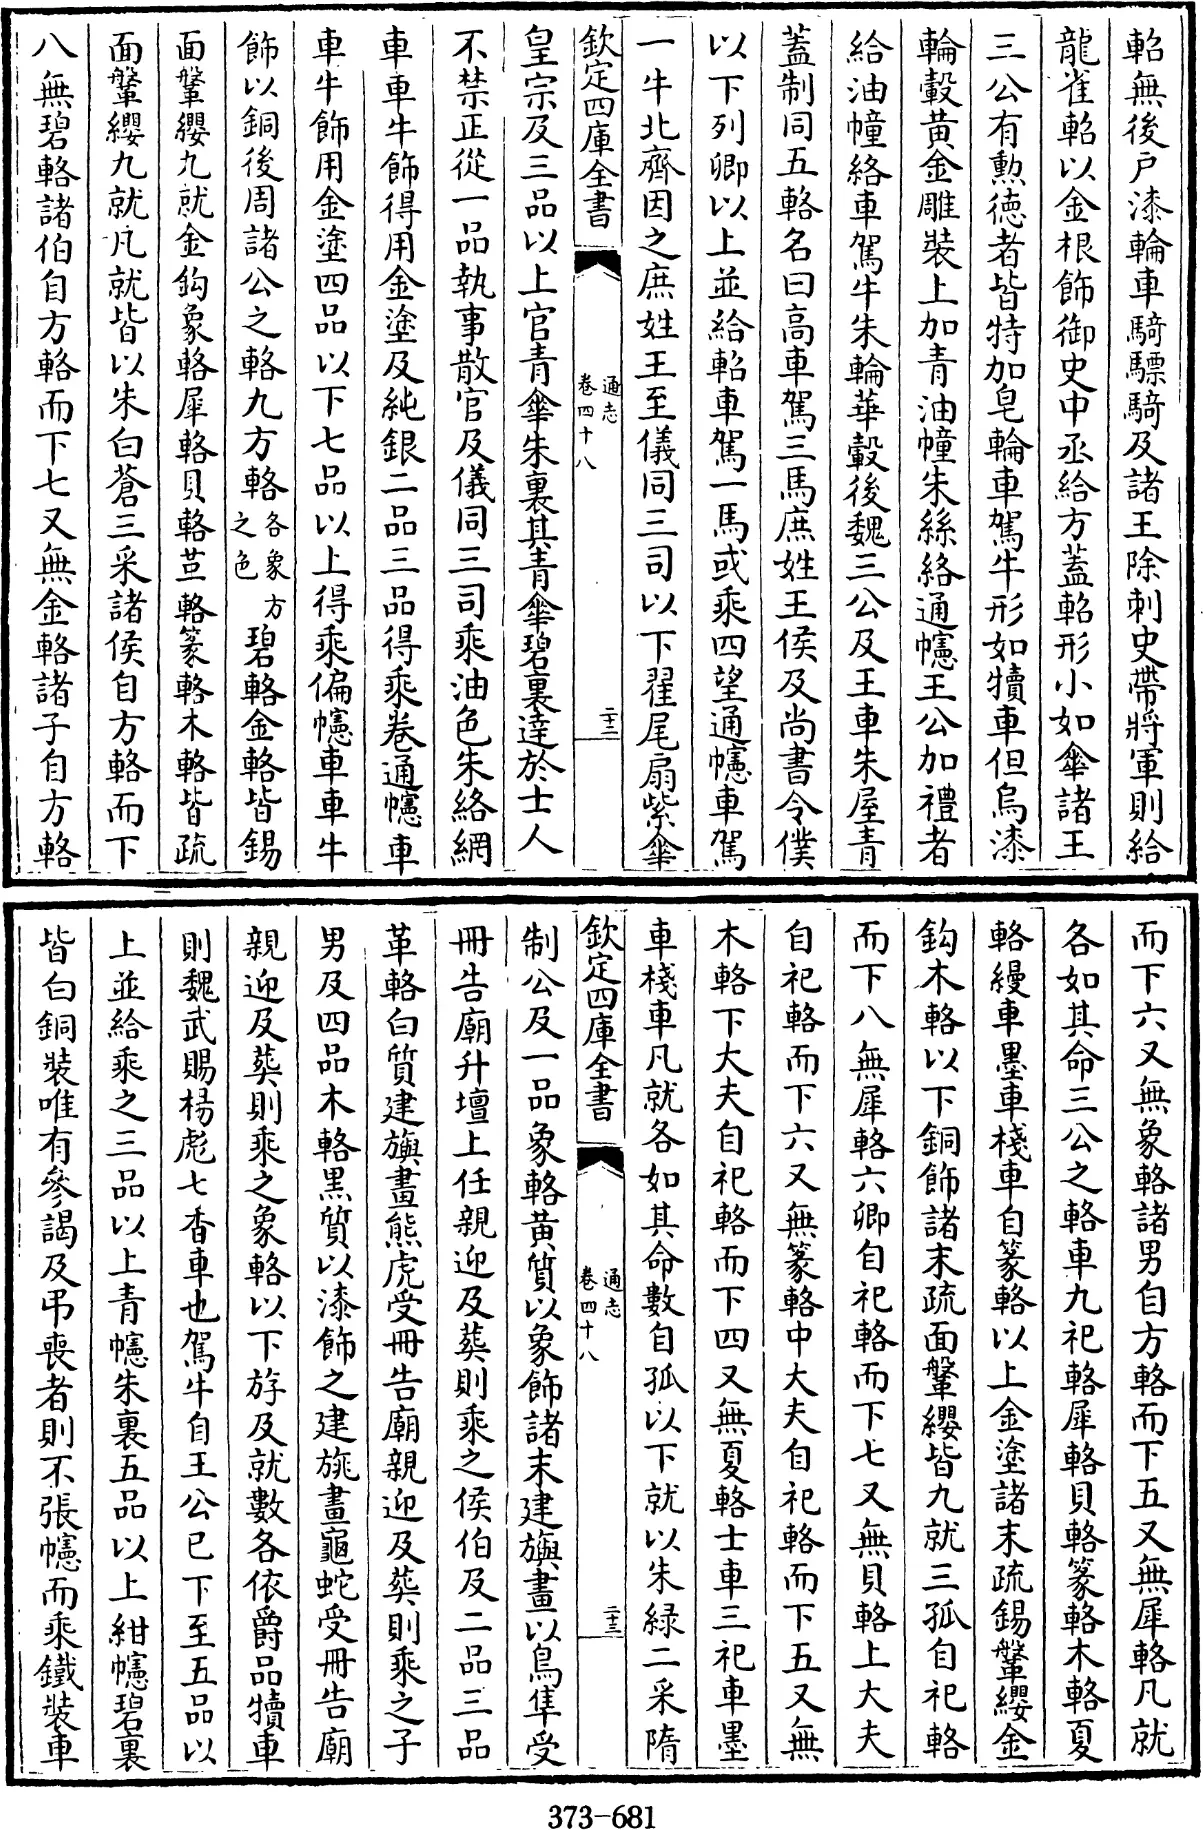 軺無後戸漆輪車騎驃騎及諸王除刺史帶將軍則給
龍雀軺以金根飾御史中丞給方蓋軺形小如傘諸王
三公有勲徳者皆特加皂輪車駕牛形如犢車但烏漆
輪轂黄金雕裝上加青油幢朱絲絡通幰王公加禮者
給油幢絡車駕牛朱輪華轂後魏三公及王車朱屋青
蓋制同五輅名曰高車駕三馬庶姓王侯及尚書令僕
以下列卿以上並給軺車駕一馬或乘四望通幰車駕
一牛北齊因之庶姓王至儀同三司以下翟尾扇紫傘
欽定四庫全書 通志 卷四十八 二十二
皇宗及三品以上官青傘朱裏其青傘碧裏達於士人
不禁正從一品執事散官及儀同三司乘油色朱絡網
車車牛飾得用金塗及純銀二品三品得乘卷通幰車
車牛飾用金塗四品以下七品以上得乘偏幰車車牛
飾以銅後周諸公之輅九方輅各象方之色碧輅金輅皆錫
面鞶纓九就金鈎象輅犀輅貝輅䒱輅篆輅木輅皆疏
面鞶纓九就凡就皆以朱白蒼三采諸侯自方輅而下
八無碧輅諸伯自方輅而下七又無金輅諸子自方輅
而下六又無象輅諸男自方輅而下五又無犀輅凡就
各如其命三公之輅車九祀輅犀輅貝輅篆輅木輅夏
輅縵車墨車棧車自篆輅以上金塗諸末疏錫鞶纓金
鈎木輅以下銅飾諸末疏面鞶纓皆九就三孤自祀輅
而下八無犀輅六卿自祀輅而下七又無貝輅上大夫
自祀輅而下六又無篆輅中大夫自祀輅而下五又無
木輅下大夫自祀輅而下四又無夏輅士車三祀車墨
車棧車凡就各如其命數自孤以下就以朱緑二采隋
欽定四庫全書 通志 卷四十八 二十三
制公及一品象輅黄質以象飾諸末建旟畫以鳥隼受
冊告廟升壇上任親迎及葬則乘之侯伯及二品三品
革輅白質建旟畫熊虎受冊告廟親迎及葬則乘之子
男及四品木輅黒質以漆飾之建旐畫龜蛇受冊告廟
親迎及葬則乘之象輅以下斿及就數各依爵品犢車
則魏武賜楊彪七香車也駕牛自王公已下至五品以
上並給乘之三品以上青幰朱裏五品以上紺幰碧裏
皆白銅裝唯有參謁及弔喪者則不張幰而乘鐵裝車
373-681